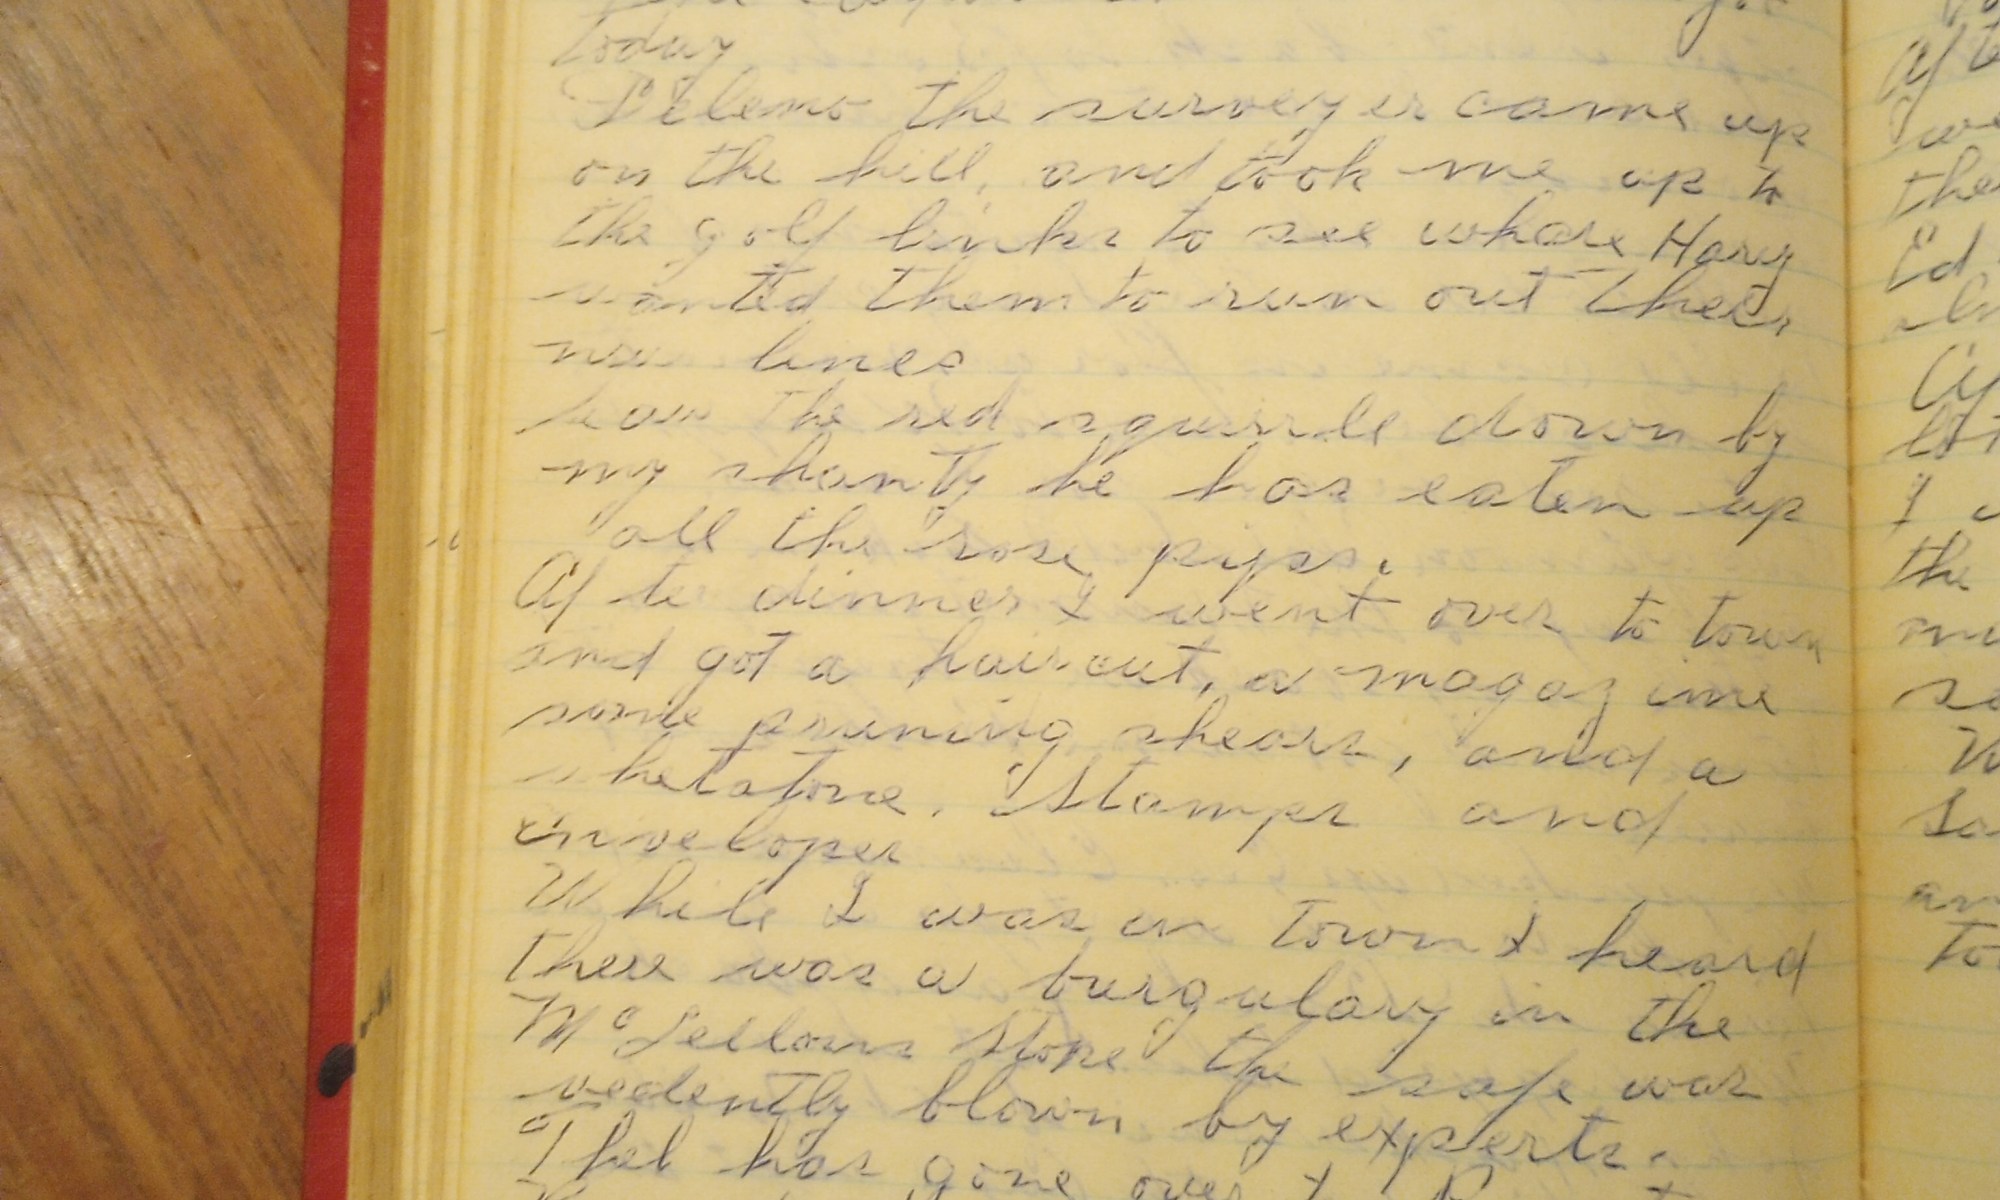 today
the surveyer came up
on the hill, and took me up to
the golf links to see whare Hary
wanted them to run out their
new lines
Saw the red squirrle down by
my shanty he has eaten up
all the rose pipss.
After dinner I went over to town
and got a hair cut, a magazine
some pruning shears, and a
whetstone. Stamps and
enveloper
While I was in town I heard
there was a burgulary in the
McLellons Store the safe was
vedently blown by experts.
has gone over to